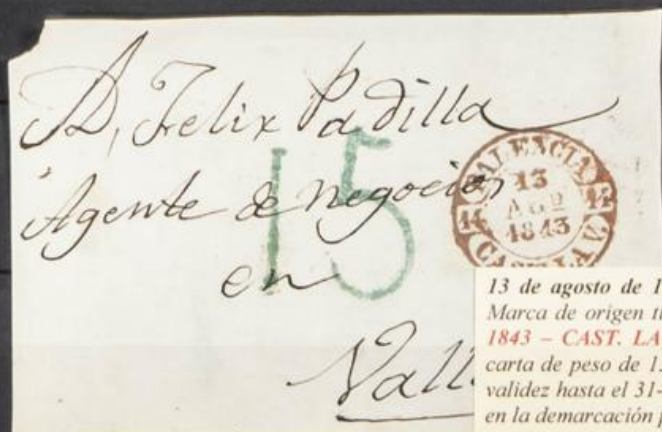 D. Felix Padilla
Agente de negocios
en
Vall
15
PALENCIA
13
AGO
1843
14 14
13 de agosto de 1
Marca de origen t
1843 – CAST. LA
carta de peso de 1
validez hasta el 31-
en la demarcación